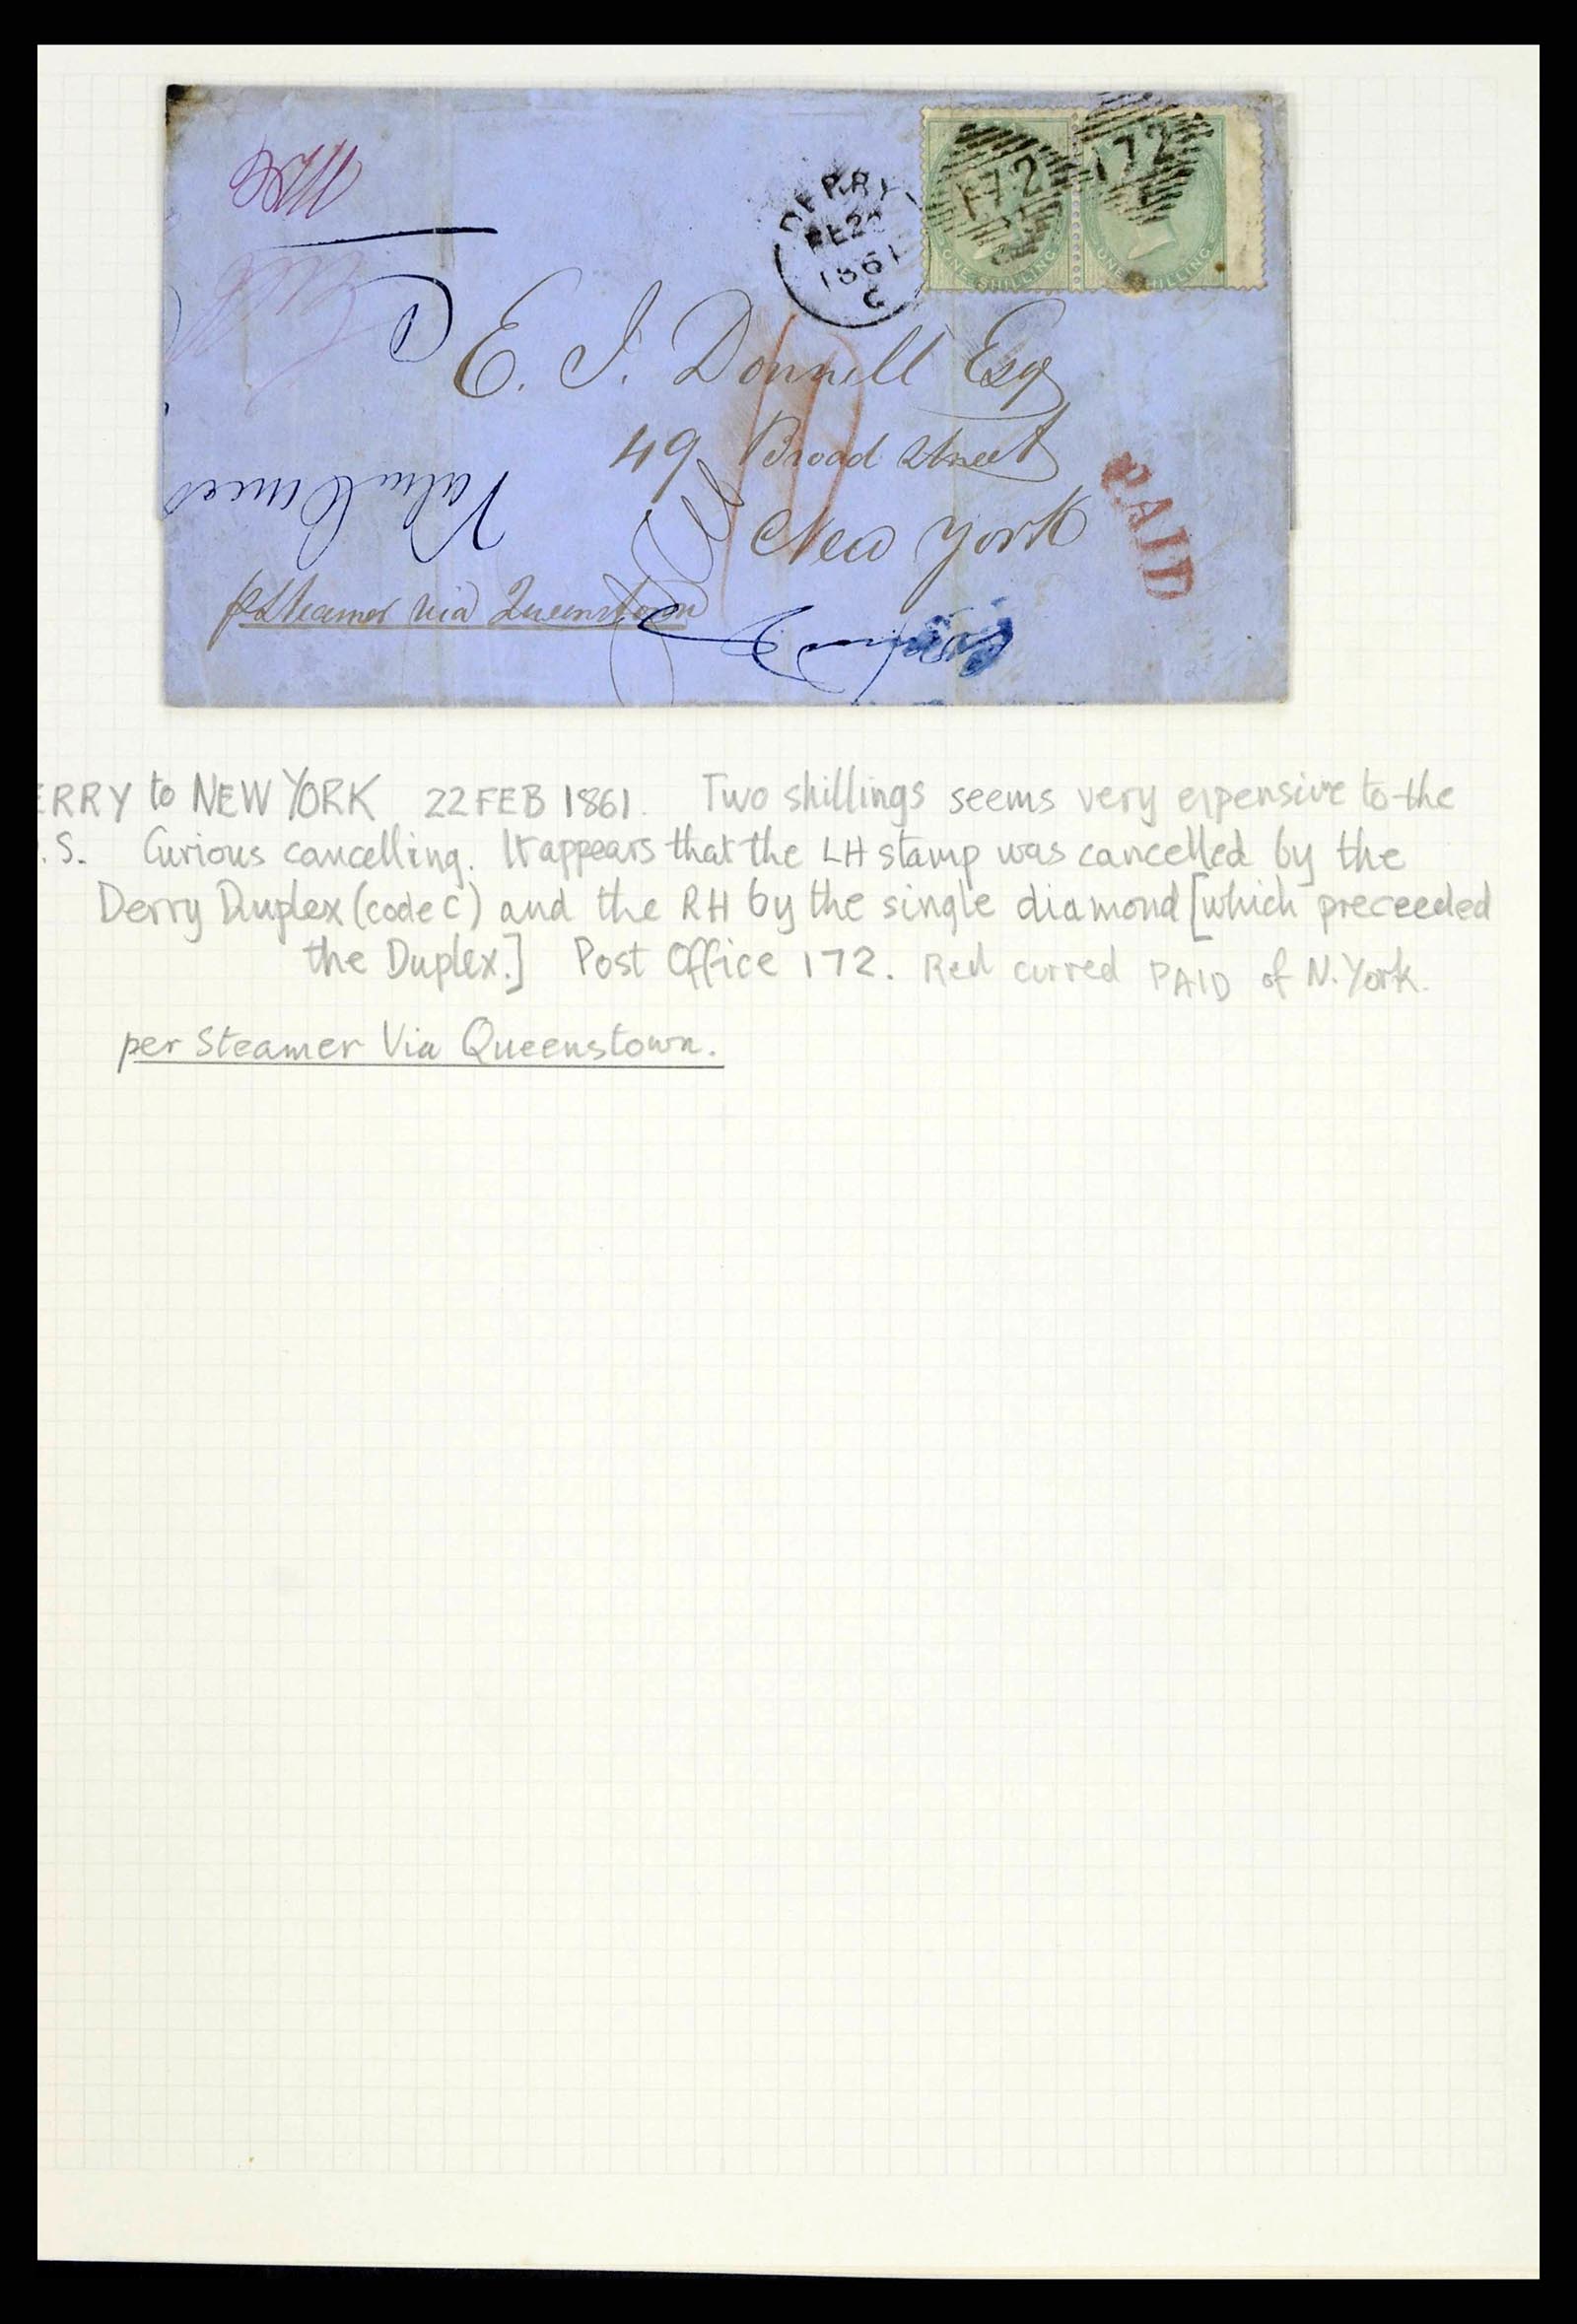 DERRY
FE22
1861
C
172
172
ONE SHILLING
ONE SHILLING
E. J. Donnell Esq
49 Broad Street
New York
PAID
p Steamer via Queenstown
ERRY to NEW YORK 22 FEB 1861. Two shillings seems very expensive to the
.S. Curious cancelling. It appears that the LH stamp was cancelled by the
Derry Duplex (code C) and the RH by the single diamond [which preceeded
the Duplex.] Post Office 172. Red curved PAID of N. York.
per Steamer Via Queenstown.